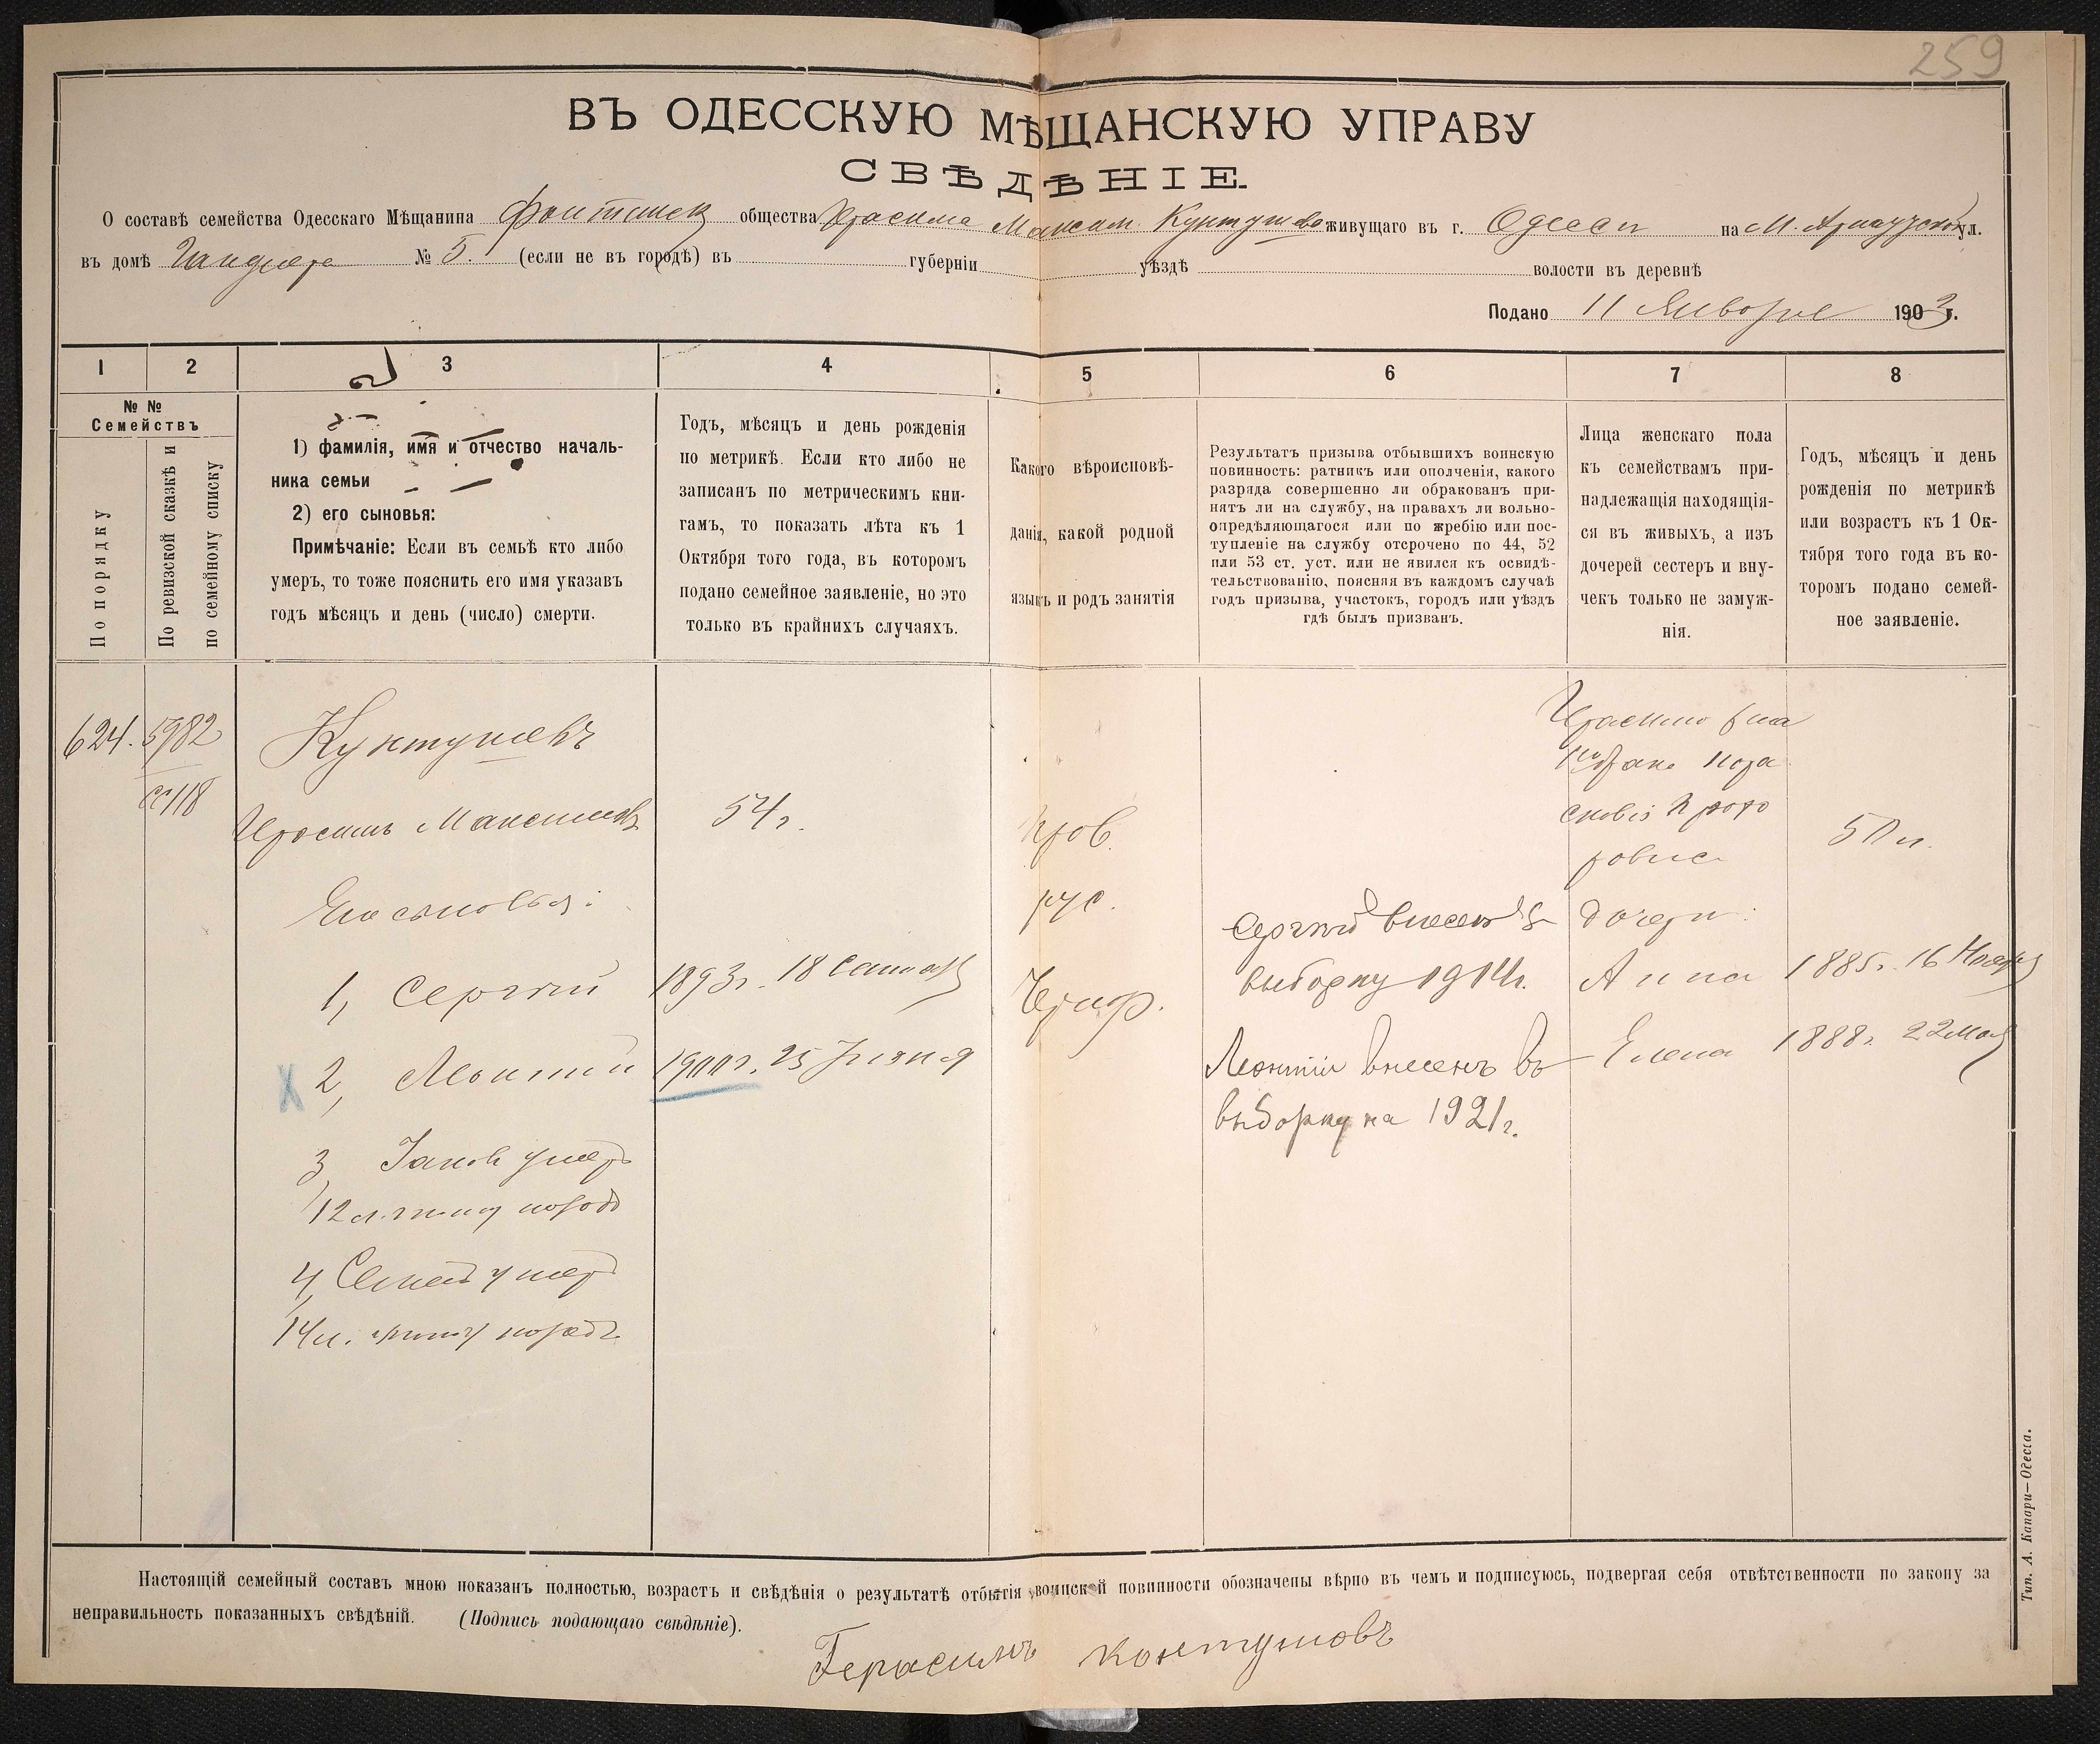 259
ВЪ ОДЕССКУЮ МѢЩАНСКУЮ УПРАВУ
СВѢДѢНІЕ.
О составѣ семейства Одесскаго Мѣщанина общества Максим. Кунтушева живущаго въ г. Одессѣ на М. Арнаутской ул.
въ домѣ № 5. (если не въ городѣ) въ губерніи уѣздѣ волости въ деревнѣ
Подано 11 Января 1903 г.
1 2 3 4 5 6 7 8
№ №
Семействъ
По порядку
По ревизской сказкѣ и
по семейному списку
1) фамилія, имя и отчество началь-
ника семьи
2) его сыновья:
Примѣчаніе: Если въ семьѣ кто либо
умеръ, то тоже пояснить его имя указавъ
годъ мѣсяцъ и день (число) смерти.
Годъ, мѣсяцъ и день рожденія
по метрикѣ. Если кто либо не
записанъ по метрическимъ кни-
гамъ, то показать лѣта къ 1
Октября того года, въ которомъ
подано семейное заявленіе, но это
только въ крайнихъ случаяхъ.
Какого вѣроисповѣ-
данія, какой родной
языкъ и родъ занятія
Результатъ призыва отбывшихъ воинскую
повинность: ратникъ или ополченія, какого
разряда совершенно ли обракованъ при-
нятъ ли на службу, на правахъ ли вольно-
опредѣляющагося или по жребію или пос-
тупленіе на службу отсрочено по 44, 52
или 53 ст. уст. или не явился къ освидѣ-
тельствованію, поясняя въ каждомъ случаѣ
годъ призыва, участокъ, городъ или уѣздъ
гдѣ былъ призванъ.
Лица женскаго пола
къ семействамъ при-
надлежащія находящія-
ся въ живыхъ, а изъ
дочерей сестеръ и вну-
чекъ только не замуж-
нія.
Годъ, мѣсяцъ и день
рожденія по метрикѣ
или возрастъ къ 1 Ок-
тября того года въ ко-
торомъ подано семей-
ное заявленіе.
624. 5982
118
Кунтушевъ
Герасимъ Максимовъ 54 г.
Прав.
рус.
50 л.
Его сыновья:
1, Сергѣй 1893 г. 18 Сентяб
2, Леонтій 1900 г. 25 Іюня
3, Іаковъ умеръ
12 л. тому назадъ
4, умеръ
14 л. тому назадъ
Сергѣй внесенъ въ
выборку 1914 г.
Леонтій внесенъ въ
выборку на 1921 г.
дочери:
Анна 1885 г. 16 Ноября
Елена 1888 г. 22 мая
Настоящій семейный составъ мною показанъ полностью, возрастъ и свѣдѣнія о результатѣ отбытія воинской повинности обозначены вѣрно въ чемъ и подписуюсь, подвергая себя отвѣтственности по закону за
неправильность показанныхъ свѣдѣній. (Подпись подающаго свѣдѣніе).
Герасимъ Контушовъ
Тип. А. Капари—Одесса.